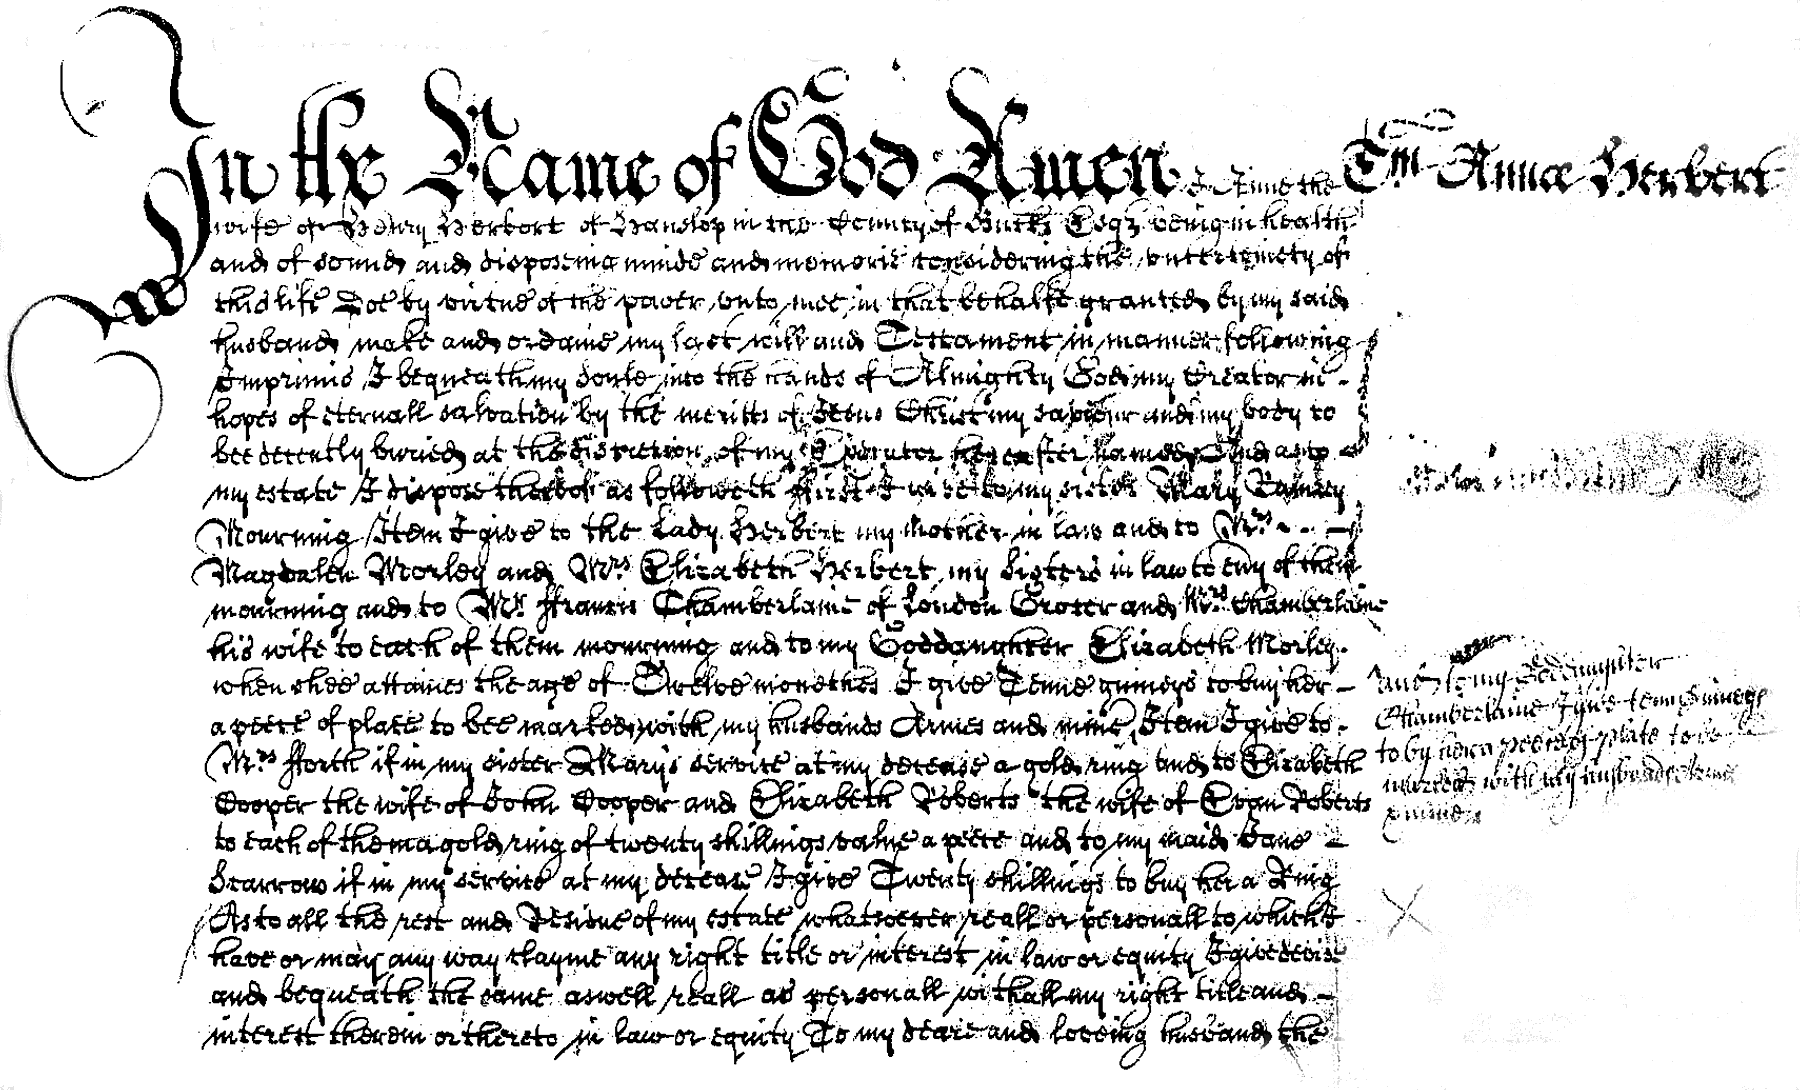 In the Name of God Amen I Anne the
Tm Annæ Herbert
wife of Henry Herbert of Hanslop in the County of Bucks Esqr being in health
and of sound and disposeing minde and memorie considering the uncertainety of
this life Doe by virtue of the power unto mee in that behalfe granted by my said
husband make and ordaine my last will and Testament in manner following
Imprimis I bequeath my soule into the hands of Almighty God my Creator in
hopes of eternall salvation by the meritts of Jesus Christ my saviour and my body to
bee decently buried at the discretion of my Executor hereafter named And as to
my estate I dispose thereof as followeth ffirst I give to my sister Mary Ramsey
Mourning Item I give to the Lady Herbert my mother in law and to Mrs
Magdalen Morley and Mrs Elizabeth Herbert my sisters in law to evy of them
mourning and to Mr ffrancis Chamberlaine of London Grocer and Mrs Chamberlaine
his wife to each of them mourning and to my Goddaughter Elizabeth Morley
when shee attaines the age of Twelve monethes I give Tenne guineys to buy her
a peece of plate to bee marked with my husbands Armes and mine Item I give to
Mrs fforth if in my sister Marys service at my decease a gold ring and to Elizabeth
Cooper the wife of John Cooper and Elizabeth Roberts the wife of Evan Roberts
to each of them a gold ring of twenty shillings value a peece and to my maid Jane
Scarrow if in my service at my decease I give Twenty shillings to buy her a Ring
As to all the rest and Residue of my estate whatsoever reall or personall to which I
have or may any way clayme any right title or interest in law or equity I give devise
and bequeath the same aswell reall as personall with all my right title and
interest therein or thereto in law or equity To my deare and loveing husband the
And to my Goddaughter
Chamberlaine I give tenn Guineys
to by her a peece of plate to be
marked with my husbands Armes
& mine